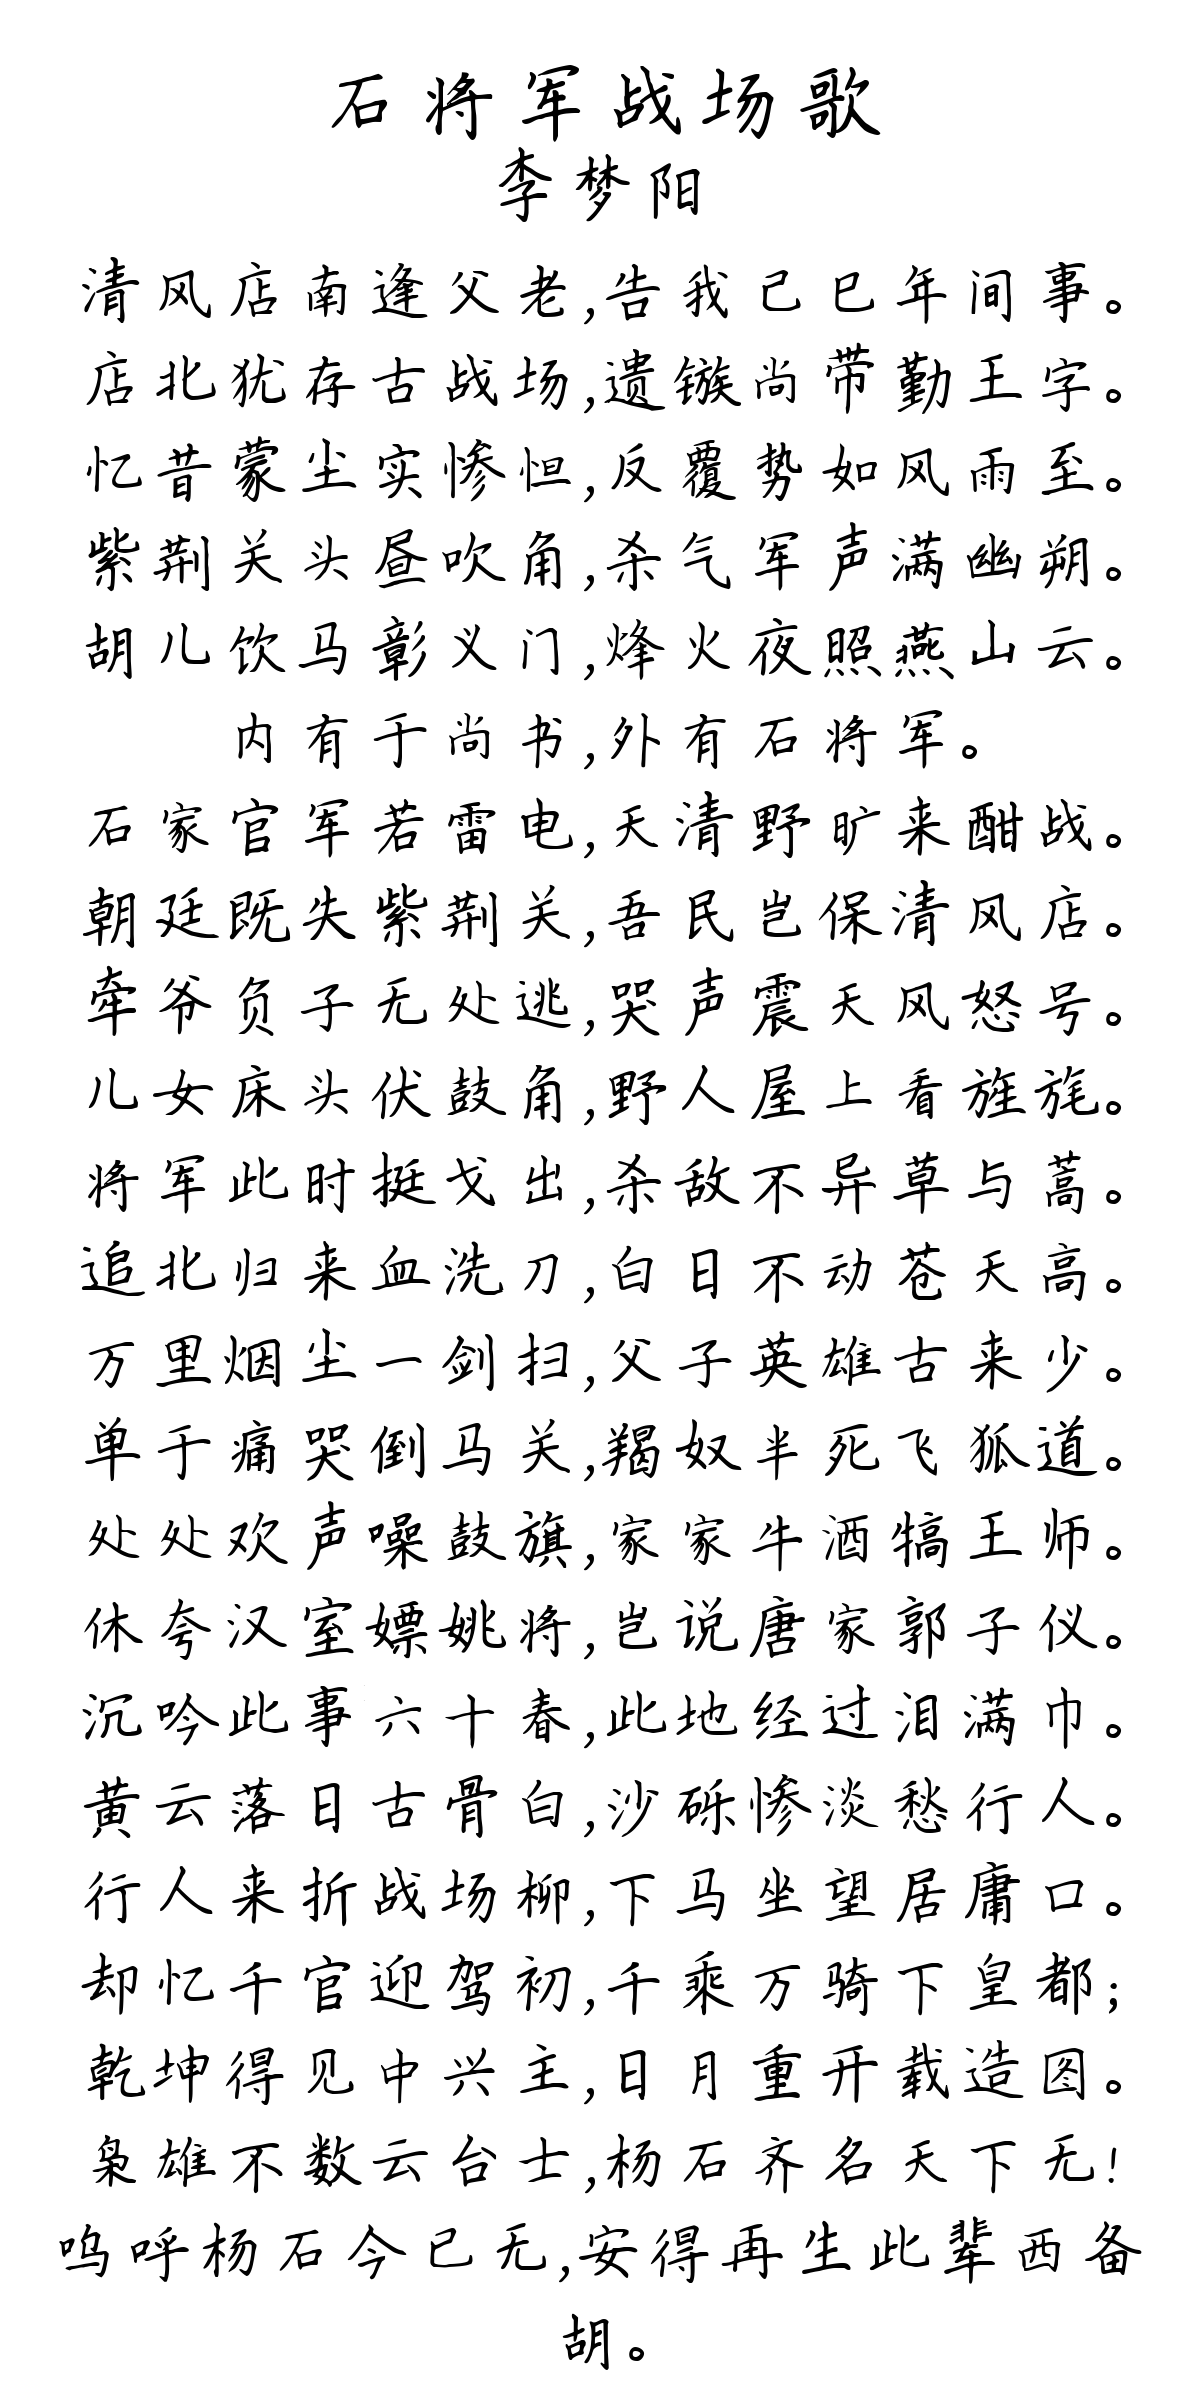 石将军战场歌
李梦阳
清风店南逢父老,告我己巳年间事。
店北犹存古战场,遗镞尚带勤王字。
忆昔蒙尘实惨怛,反覆势如风雨至。
紫荆关头昼吹角,杀气军声满幽朔。
胡儿饮马彰义门,烽火夜照燕山云。
内有于尚书,外有石将军。
石家官军若雷电,天清野旷来酣战。
朝廷既失紫荆关,吾民岂保清风店。
牵爷负子无处逃,哭声震天风怒号。
儿女床头伏鼓角,野人屋上看旌旄。
将军此时挺戈出,杀敌不异草与蒿。
追北归来血洗刀,白日不动苍天高。
万里烟尘一剑扫,父子英雄古来少。
单于痛哭倒马关,羯奴半死飞狐道。
处处欢声噪鼓旗,家家牛酒犒王师。
休夸汉室嫖姚将,岂说唐家郭子仪。
沉吟此事六十春,此地经过泪满巾。
黄云落日古骨白,沙砾惨淡愁行人。
行人来折战场柳,下马坐望居庸口。
却忆千官迎驾初,千乘万骑下皇都;
乾坤得见中兴主,日月重开载造图。
枭雄不数云台士,杨石齐名天下无!
呜呼杨石今已无,安得再生此辈西备
胡。